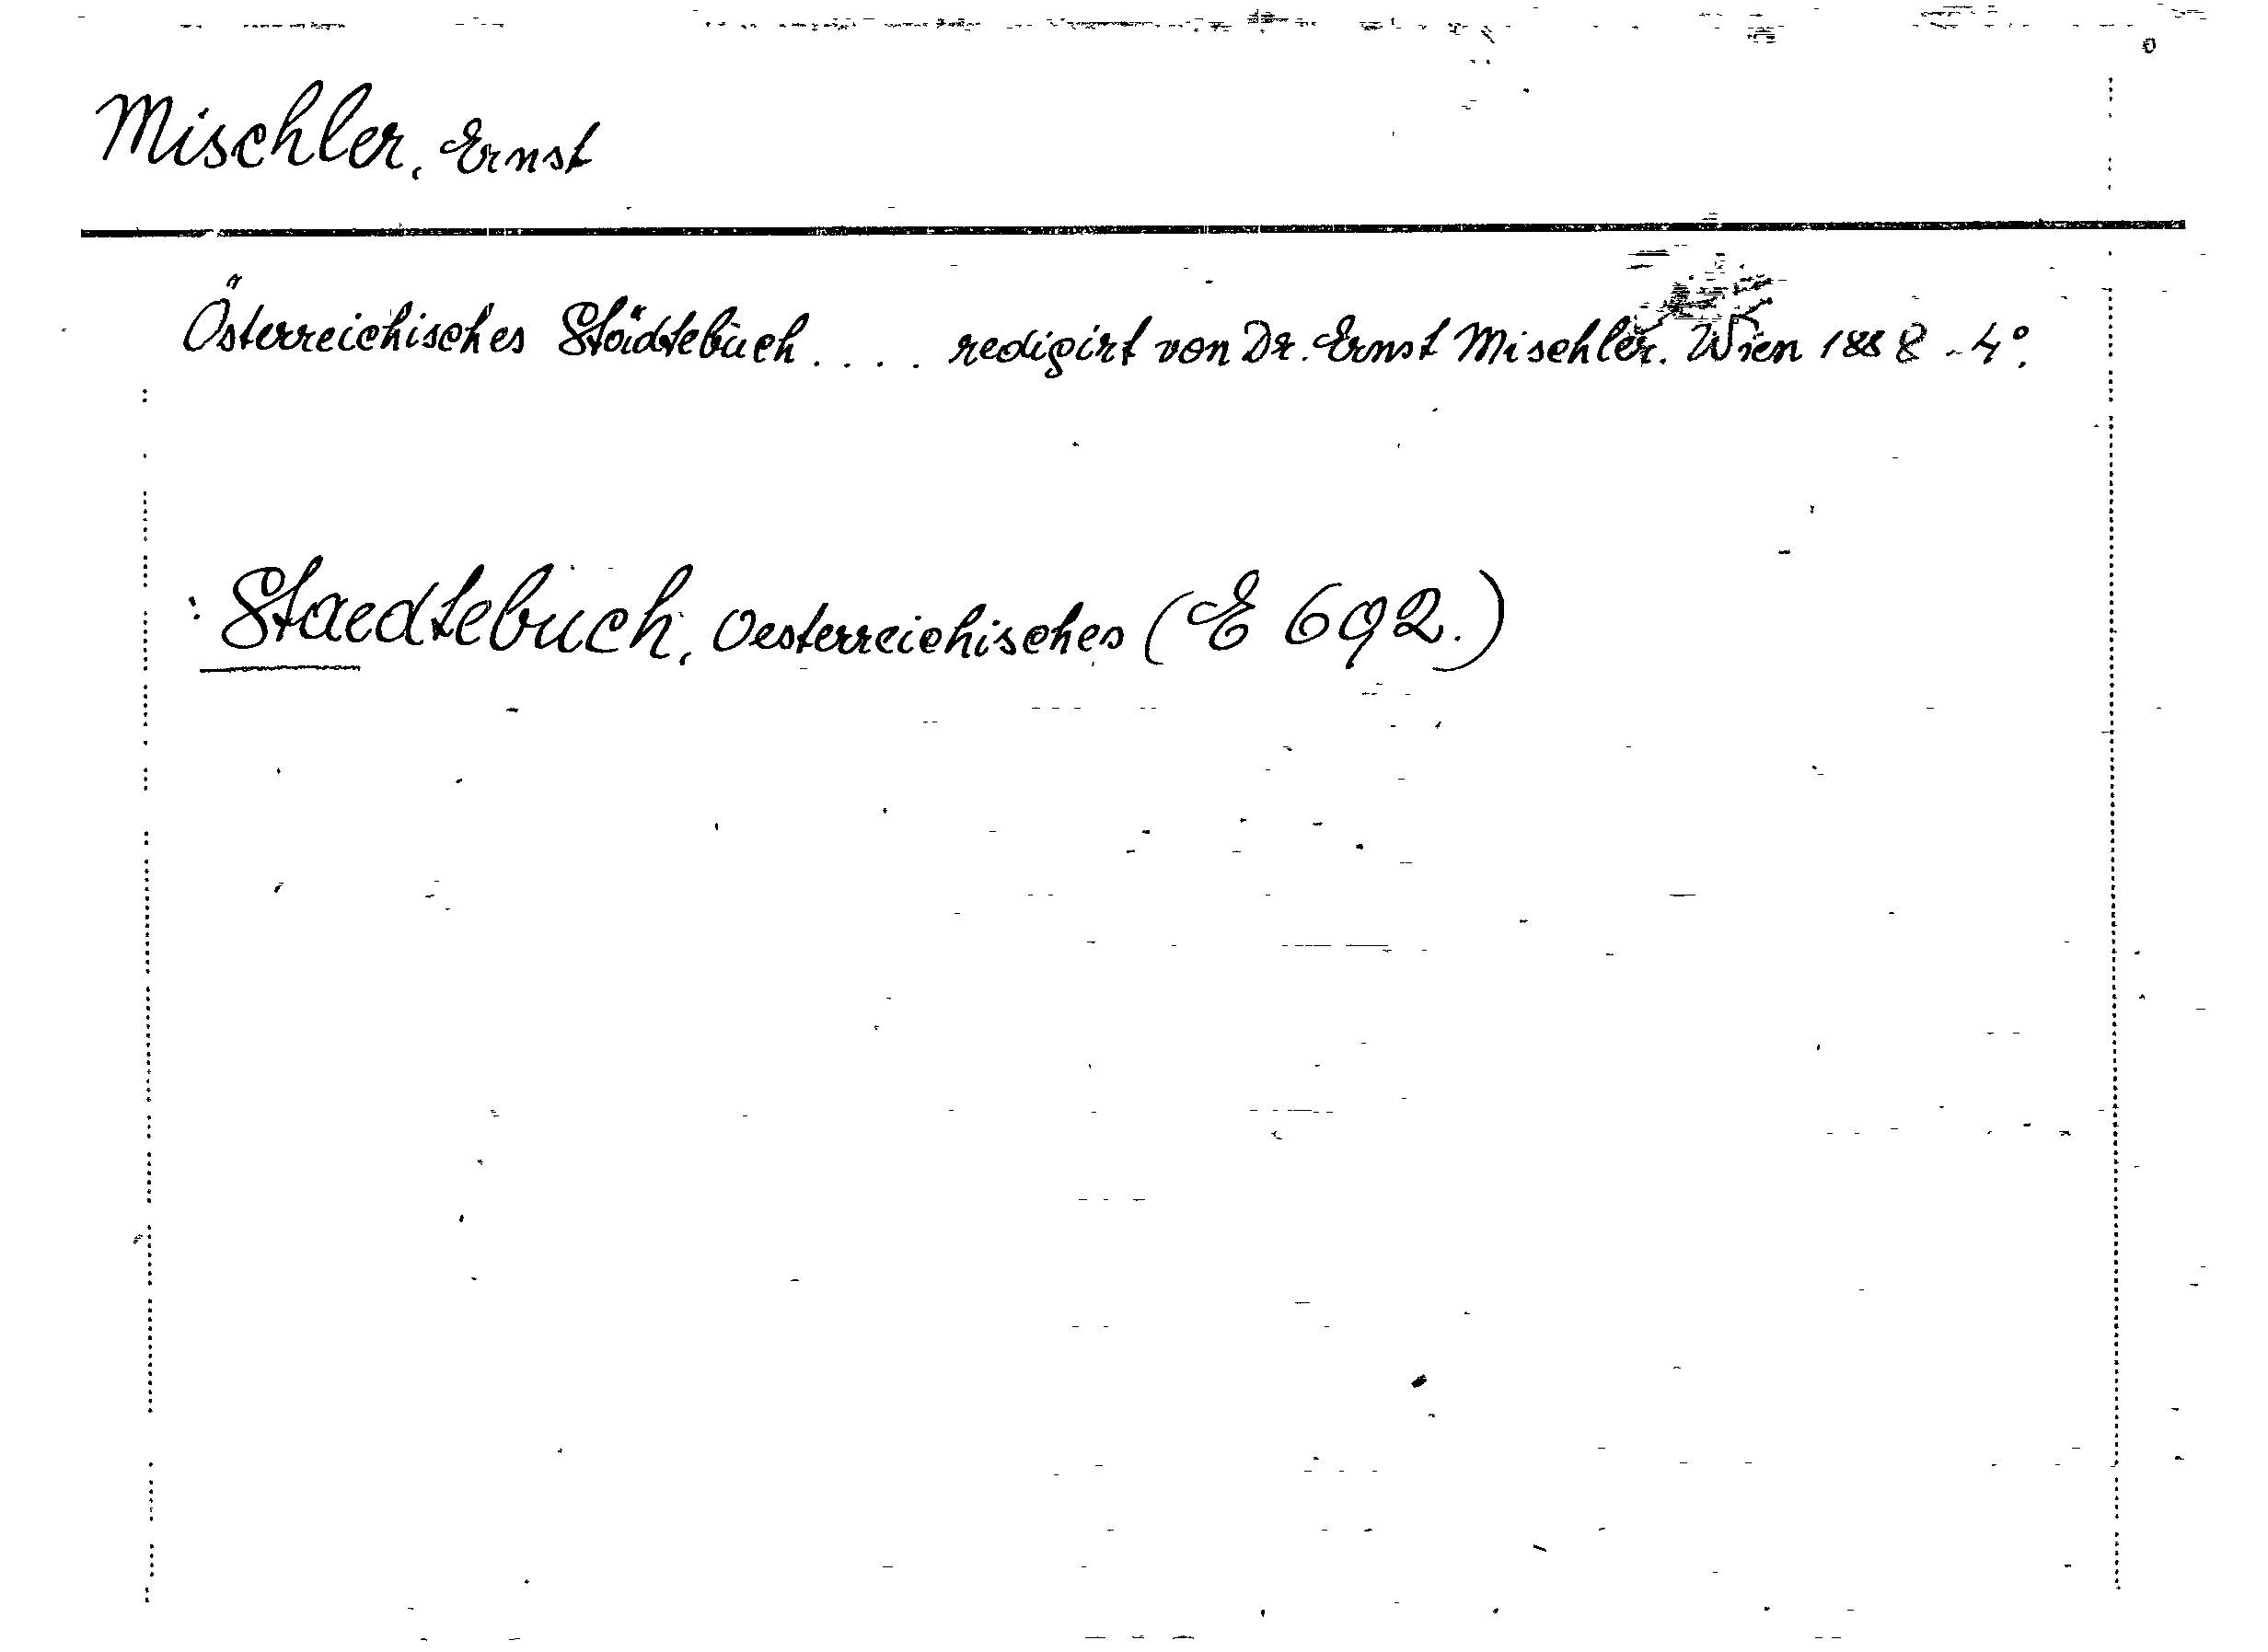 Mischler, Ernst
Österreichisches Städtebuch .... redigirt von Dr. Ernst Mischler. Wien 1888 - 4°.
: Staedtebuch, Oesterreichisches (E 692.)